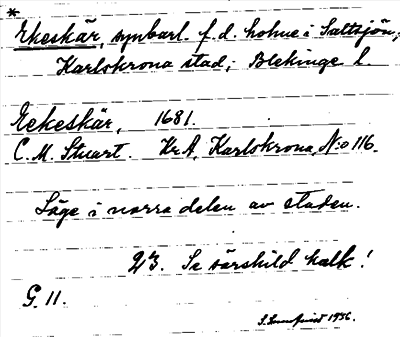 *
Ekeskär, synbarl. f.d. holme i Saltsjön,
Karlskrona stad; Blekinge l.
Eekeskär, 1681.
C. M. Stuart. Kr A, Karlskrona, N:o 116.
Läge i norra delen av staden.
23. Se särskild kalk!
G. 11.
1936.